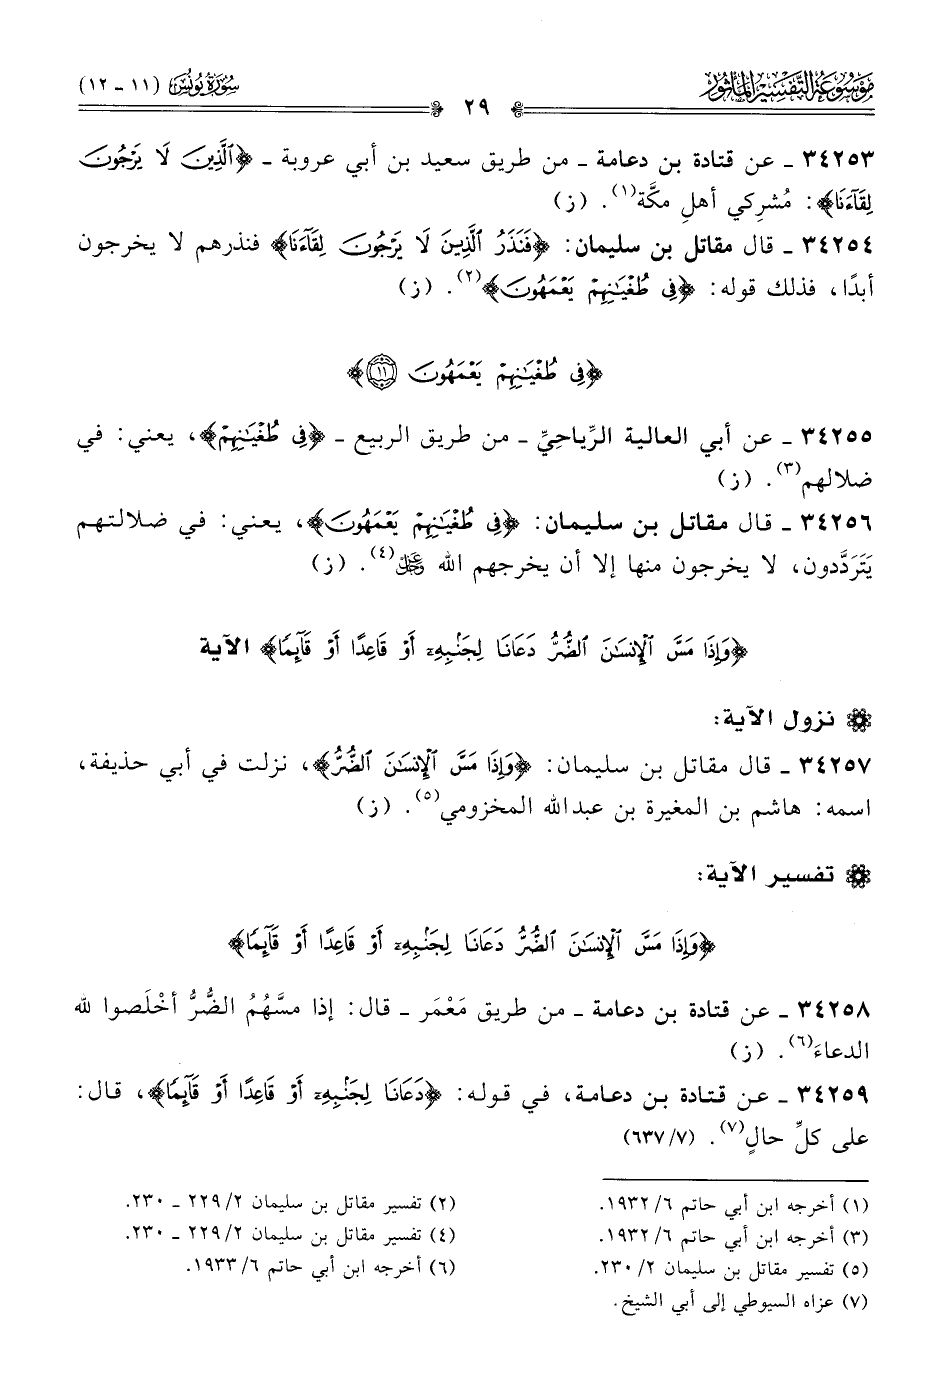 مَوْسُوعَةُ التَّفْسِيرِ المَأْثُورِ
٢٩
سُورَةُ يُونُسَ (١١ - ١٢)
٣٤٢٥٣ ـ عن قتادة بن دعامة ـ من طريق سعيد بن أبي عروبة ـ ﴿ٱلَّذِينَ لَا يَرْجُونَ
لِقَآءَنَا﴾: مُشركي أهلِ مكَّة(١). (ز)
٣٤٢٥٤ ـ قال مقاتل بن سليمان: ﴿فَنَذَرُ ٱلَّذِينَ لَا يَرْجُونَ لِقَآءَنَا﴾ فنذرهم لا يخرجون
أبدًا، فذلك قوله: ﴿فِى طُغْيَـٰنِهِمْ يَعْمَهُونَ﴾(٢). (ز)
﴿فِى طُغْيَـٰنِهِمْ يَعْمَهُونَ ١١﴾
٣٤٢٥٥ ـ عن أبي العالية الرِّياحيِّ ـ من طريق الربيع ـ ﴿فِى طُغْيَـٰنِهِمْ﴾، يعني: في
ضلالهم(٣). (ز)
٣٤٢٥٦ ـ قال مقاتل بن سليمان: ﴿فِى طُغْيَـٰنِهِمْ يَعْمَهُونَ﴾، يعني: في ضلالتهم
يَتَرَدَّدون، لا يخرجون منها إلا أن يخرجهم الله ﷿(٤). (ز)
﴿وَإِذَا مَسَّ ٱلْإِنسَـٰنَ ٱلضُّرُّ دَعَانَا لِجَنۢبِهِۦٓ أَوْ قَاعِدًا أَوْ قَآئِمًا﴾ الآية
نزول الآية:
٣٤٢٥٧ ـ قال مقاتل بن سليمان: ﴿وَإِذَا مَسَّ ٱلْإِنسَـٰنَ ٱلضُّرُّ﴾، نزلت في أبي حذيفة،
اسمه: هاشم بن المغيرة بن عبدالله المخزومي(٥). (ز)
تفسير الآية:
﴿وَإِذَا مَسَّ ٱلْإِنسَـٰنَ ٱلضُّرُّ دَعَانَا لِجَنۢبِهِۦٓ أَوْ قَاعِدًا أَوْ قَآئِمًا﴾
٣٤٢٥٨ ـ عن قتادة بن دعامة ـ من طريق مَعْمَر ـ قال: إذا مسَّهُمُ الضُّرُّ أخْلَصوا لله
الدعاءَ(٦). (ز)
٣٤٢٥٩ ـ عن قتادة بن دعامة، في قوله: ﴿دَعَانَا لِجَنۢبِهِۦٓ أَوْ قَاعِدًا أَوْ قَآئِمًا﴾، قال:
على كلِّ حالٍ(٧). (٦٣٧/٧)
(١) أخرجه ابن أبي حاتم ٦/ ١٩٣٢.
(٢) تفسير مقاتل بن سليمان ٢/ ٢٢٩ ـ ٢٣٠.
(٣) أخرجه ابن أبي حاتم ٦/ ١٩٣٢.
(٤) تفسير مقاتل بن سليمان ٢/ ٢٢٩ ـ ٢٣٠.
(٥) تفسير مقاتل بن سليمان ٢/ ٢٣٠.
(٦) أخرجه ابن أبي حاتم ٦/ ١٩٣٣.
(٧) عزاه السيوطي إلى أبي الشيخ.